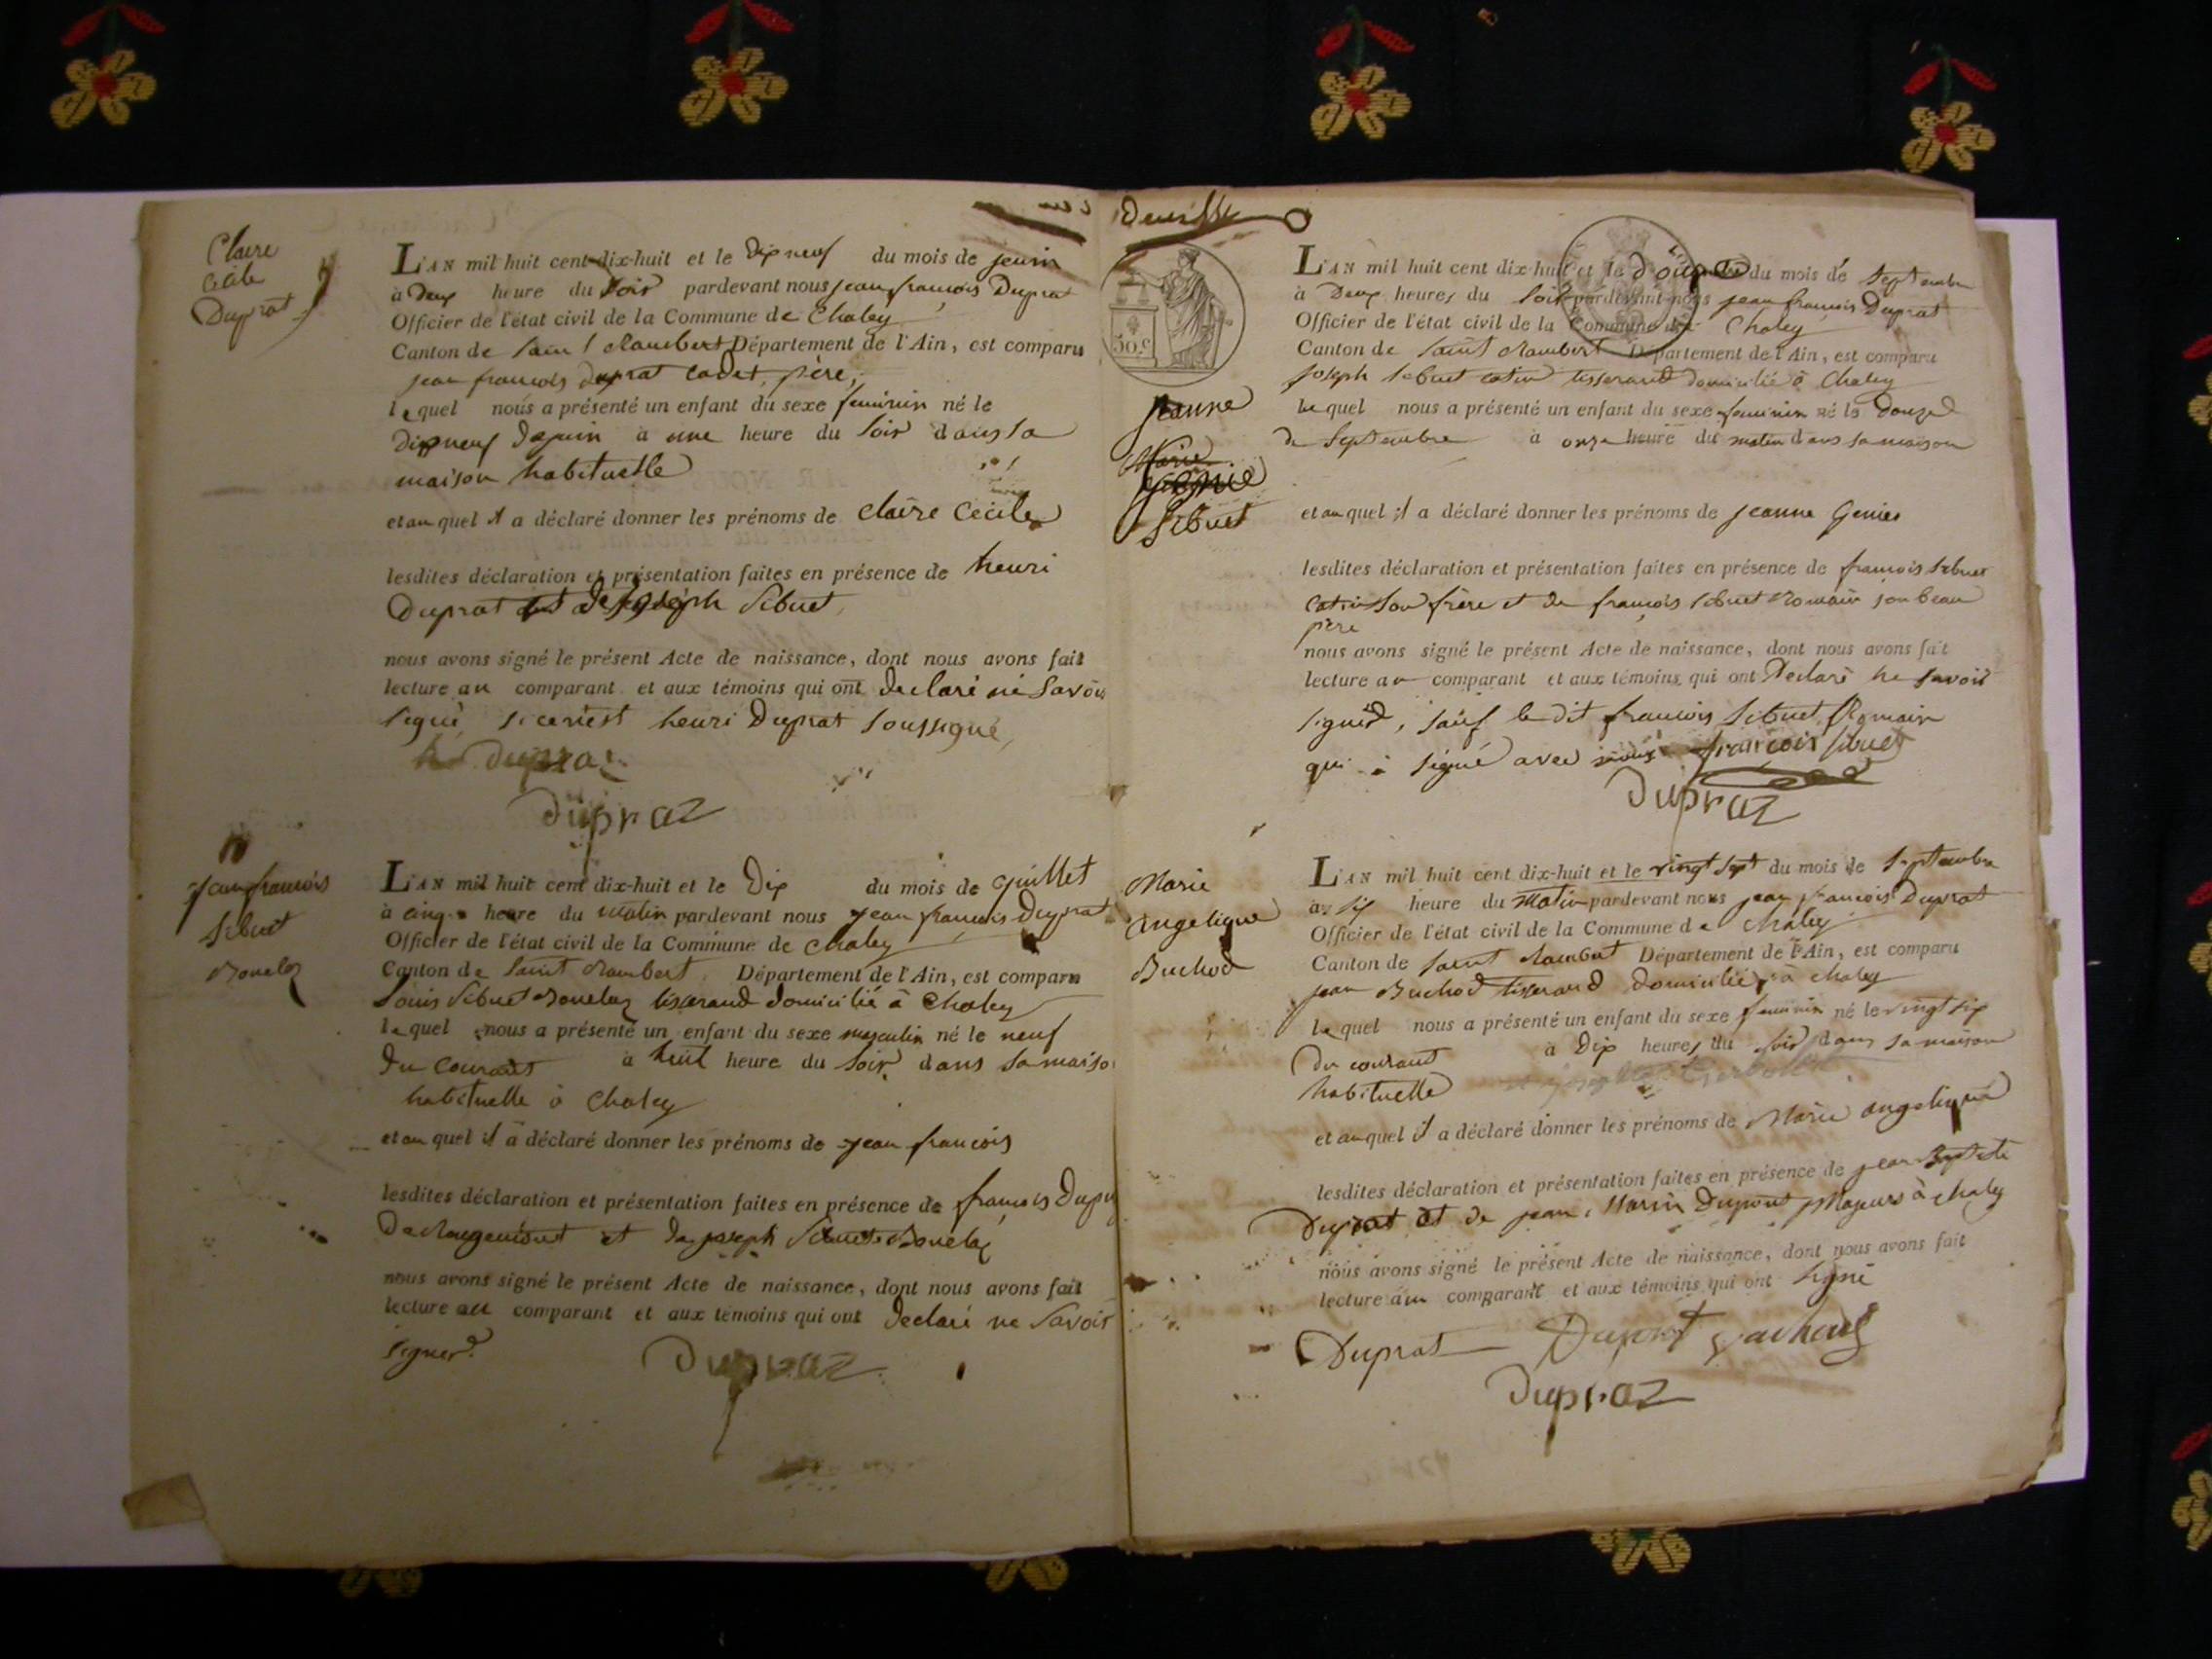 Claire
Cécile
Duprat
L'AN mil huit cent dix-huit et le dix neuf du mois de jeuin
à deux heure du soir pardevant nous jean françois Duprat
Officier de l'état civil de la Commune de Chaley
Canton de saint Rambert Département de l'Ain, est comparu
jean françois duprat cadet, père,
lequel nous a présenté un enfant du sexe feminin né le
dix neuf de juin à une heure du soir dans sa
maison habituelle
et au quel il a déclaré donner les prénoms de Claire Cécile
lesdites déclaration et présentation faites en présence de henri
Duprat et de joseph Sibuet,
nous avons signé le présent Acte de naissance, dont nous avons fait
lecture au comparant et aux témoins qui ont declaré ne Savoir
signé, si ce n'est henri Duprat soussigné,
Dupraz
Dupraz
jean françois
Sibuet
L'AN mil huit cent dix-huit et le Dix du mois de juillet
à cinq heure du matin pardevant nous jean françois Duprat
Officier de l'état civil de la Commune de Chaley
Canton de Saint Rambert Département de l'Ain, est comparu
Louis Sibuet tisserand domicilié à Chaley
lequel nous a présenté un enfant du sexe masculin né le neuf
du courant à huit heure du soir dans sa maiso
habituelle à Chaley
et au quel il a déclaré donner les prénoms de jean françois
lesdites déclaration et présentation faites en présence de françois Dupu
et de joseph Sibuet
nous avons signé le présent Acte de naissance, dont nous avons fait
lecture au comparant et aux témoins qui ont declaré ne Savoir
signer.
Dupraz
50 c
jeanne
Marie
Genie
Sibuet
L'AN mil huit cent dix-huit et le douze du mois de Septembre
à Deux heures du soir pardevant nous jean françois Duprat
Officier de l'état civil de la Commune de Chaley
Canton de Saint Rambert Département de l'Ain, est comparu
joseph Sibuet cotin tisserand domicilié à Chaley
lequel nous a présenté un enfant du sexe feminin né le douze
de Septembre à onze heure du matin dans sa maison
et au quel il a déclaré donner les prénoms de jeanne Genies
lesdites déclaration et présentation faites en présence de françois Sibuet
cotin son frère et de françois Sibuet Romain son beau
père
nous avons signé le présent Acte de naissance, dont nous avons fait
lecture au comparant et aux témoins qui ont declaré ne savoir
signéd, sauf le dit françois Sibuet Romain
qui à signé avec nous françois sibuet
Dupraz
Marie
Angelique
Buchod
L'AN mil huit cent dix-huit et le vingt sept du mois de Septembre
à six heure du matin pardevant nous jean françois Duprat
Officier de l'état civil de la Commune de Chaley
Canton de saint Rambert Département de l'Ain, est comparu
jean Buchod tisserand domicilié à chaley
lequel nous a présenté un enfant du sexe feminin né le vingt six
du courant à dix heures du soir dans sa maison
habituelle
et auquel il a déclaré donner les prénoms de Marie angelique
lesdites déclaration et présentation faites en présence de jean Baptiste
Duprat et de jean Marin Dupont Majeurs à chaley
nous avons signé le présent Acte de naissance, dont nous avons fait
lecture au comparant et aux témoins qui ont signé
Duprat Dupont
Dupraz